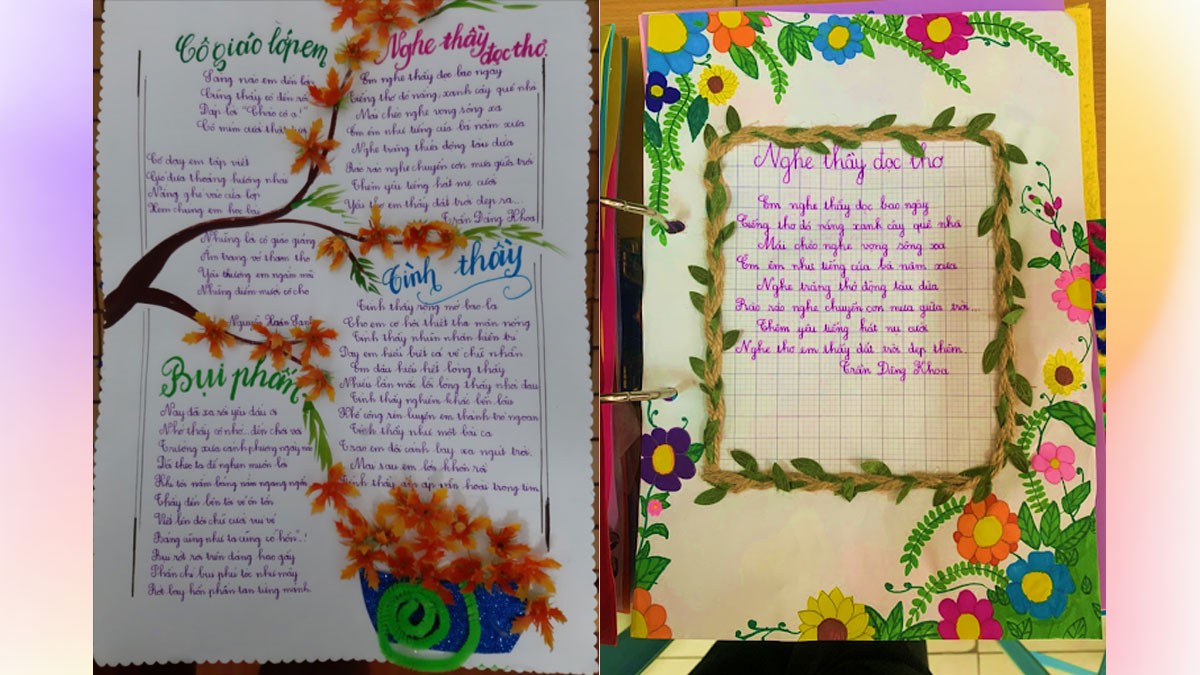 Cô giáo lớp em
Sáng nào em đến lớp
Cũng thấy cô đến rồi
Đáp lời "Chào cô ạ!"
Cô mỉm cười thật
Cô dạy em tập viết
Gió đưa thoảng hương nhài
Nắng ghé vào cửa lớp
Xem chúng em học bài
Những lời cô giáo giảng
Ấm trang vở thơm tho
Yêu thương em ngắm mãi
Những điểm mười cô cho
Nguyễn Xuân Sanh
Bụi phấn
Nay đã xa rồi yêu dấu ơi
Nhớ thầy cô nhớ... đến chơi vơi
Trường xưa cạnh phượng ngày
Đã theo ta để nghẹn muôn lời
Khi tôi nằm bảng nằm ngang ngổn
Thầy đến bên tôi vẻ ôn tồn
Viết lên đôi chữ cười vui vẻ
Bảng cũng như ta cũng có "hồn"..!
Bụi rơi rơi trên dáng hao gầy
Phấn chi bụi phủ tóc như mây
Rơi bay hồn phấn tan từng mảnh
Nghe thầy đọc thơ
Em nghe thầy đọc bao ngày
Tiếng thơ đỏ nắng, xanh cây quê nhà
Mái chèo nghe vọng sông xa
Êm êm như tiếng của bà năm xưa
Nghe trăng thuở động tàu dừa
Rào rào nghe chuyển cơn mưa giữa trời
Thêm yêu tiếng hát mẹ cười
Yêu thơ em thấy đất trời đẹp ra...
(Trần Đăng Khoa)
Tình thầy
Tình thầy sông mở bao la
Cho em cơ hội thiết tha mặn nồng
Tình thầy nhẫn nhẫn kiên trì
Dạy em hiểu biết cả về chữ nhẫn
Em đâu hiểu hết lòng thầy
Nhiều lần mắc lỗi lòng thầy nhói đau
Tình thầy nghiêm khắc bền lâu
Khổ công rèn luyện em thành trò ngoan
Tình thầy như một bài ca
Trao em đôi cánh bay xa ngút trời
Mai sau em lớn khôn rồi
Tình thầy ấm áp vẫn hoài trong tim
Nghe thầy đọc thơ
Em nghe thầy đọc bao ngày
Tiếng thơ đỏ nắng xanh cây quê nhà
Mái chèo nghe vọng sông xa
Êm êm như tiếng của bà năm xưa
Nghe trăng thở động tàu dừa
Rào rào nghe chuyển cơn mưa giữa trời
Thêm yêu tiếng hát nụ cười
Nghe thơ em thấy đất trời đẹp thêm.
Trần Đăng Khoa